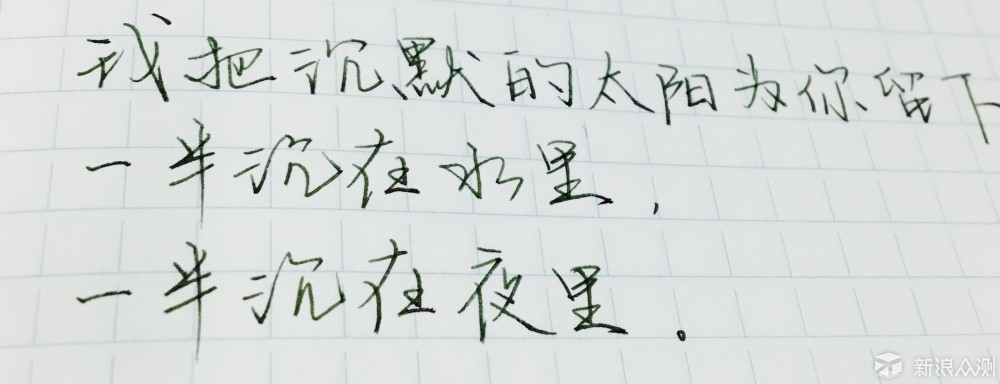 我把沉默的太阳为你留下
一半沉在水里，
一半沉在夜里。
新浪众测